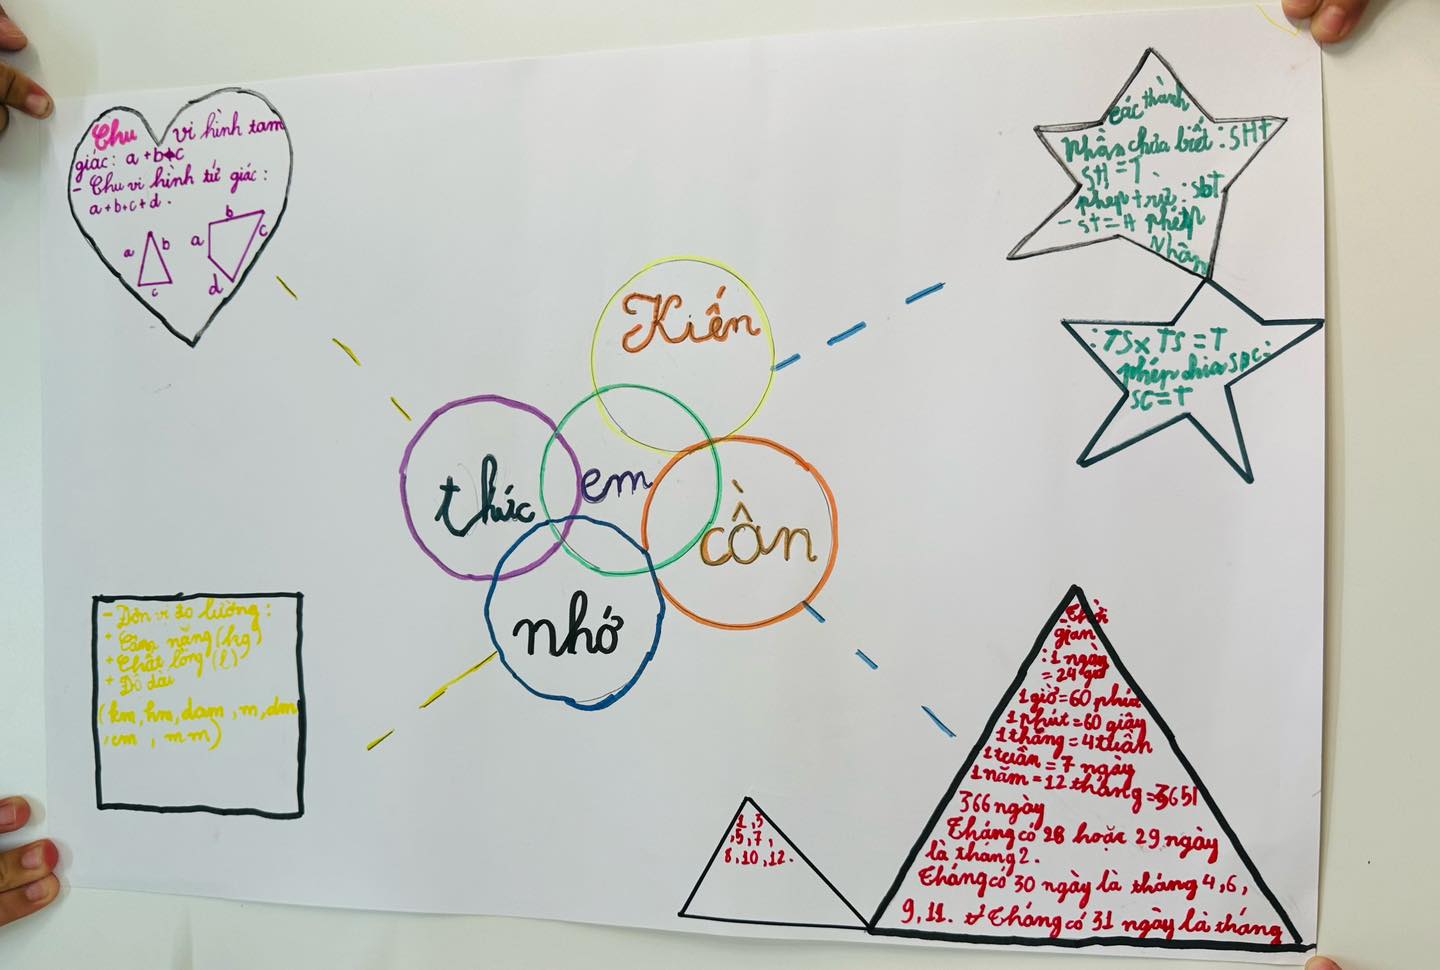 Chu vi hình tam
giác: a+b+c
- Chu vi hình tứ giác:
a+b+c+d.
a b c
a b c d
Các thành
phần chưa biết: SHt
SH=T.
phép trừ: Sbt
- st=H phép
Nhân
: TS x TS = T
phép chia SBC:
SC=T
Kiến
thức
em
cần
nhớ
- Đơn vị đo lường:
+ Cân nặng (kg)
+ Chất lỏng (l)
+ Độ dài
(km, hm, dam, m, dm
, cm, mm)
- Thời
gian
: 1 ngày
= 24 giờ
1 giờ = 60 phút
1 phút = 60 giây
1 tháng = 4 tuần
1 tuần = 7 ngày
1 năm = 12 tháng = 365
366 ngày
Tháng có 28 hoặc 29 ngày
là tháng 2.
Tháng có 30 ngày là tháng 4, 6,
9, 11. Tháng có 31 ngày là tháng
1, 3
, 5, 7,
8, 10, 12.